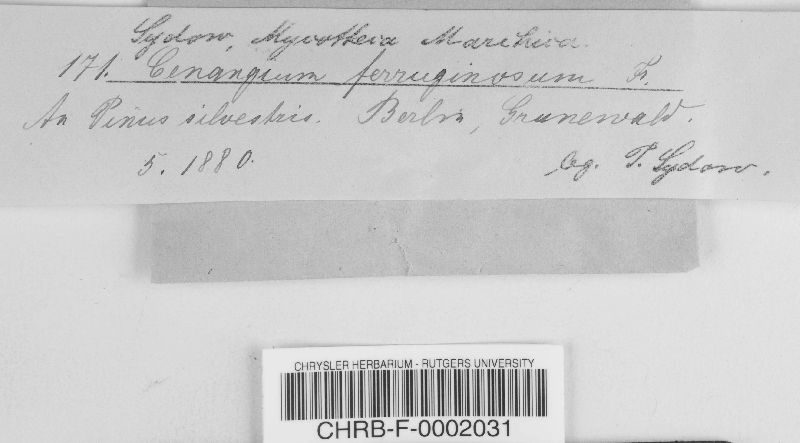 Sydow, Mycotheca Marchica.
171. Cenangium ferruginosum Fr.
An Pinus silvestris. Berlin, Grunewald.
5. 1880. leg. P. Sydow.
CHRYSLER HERBARIUM - RUTGERS UNIVERSITY
CHRB-F-0002031